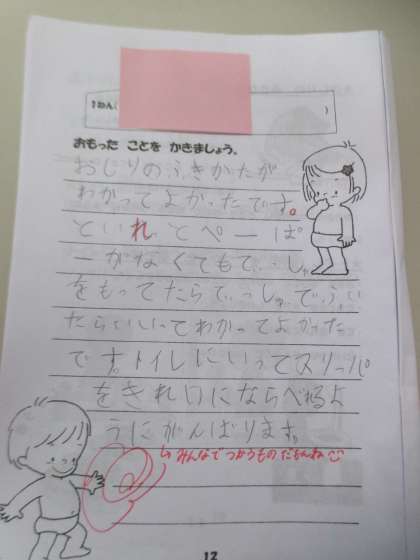 1ねん( )
おもった ことを かきましょう。
おしりのふきかたが
わかってよかったです。
といれっとペーぱ
ーがなくてもてぃっしゅ
をもってたらてぃっしゅでふい
たらいいってわかってよかった
です。トイレにいってスリッパ
をきれいにならべるよ
うにがんばります。
みんなで つかうもの だもんね
12